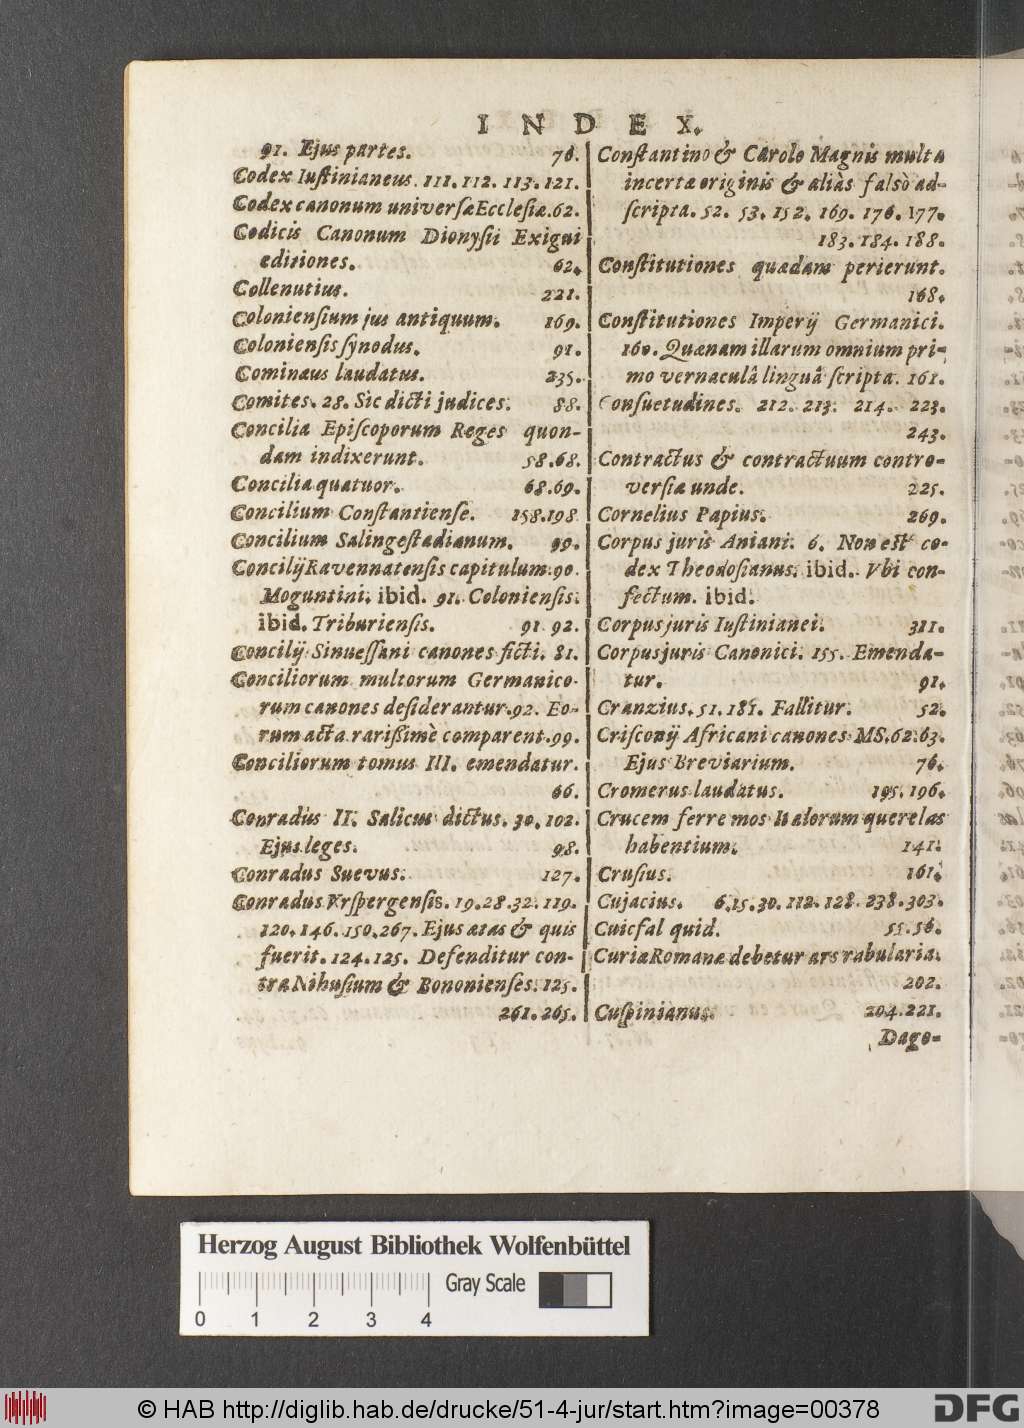 INDEX.
91. Ejus partes. 76.
Codex Iuſtinianeus. 111. 112. 113. 121.
Codex canonum univerſæ Eccleſiæ. 62.
Codicis Canonum Dionyſii Exigui
editiones. 62.
Collenutius. 221.
Colonienſium jus antiquum. 169.
Colonienſis ſynodus. 91.
Cominæus laudatus. 235.
Comites. 28. Sic dicti judices. 88.
Concilia Epiſcoporum Reges quon-
dam indixerunt. 58. 68.
Concilia quatuor. 68. 69.
Concilium Conſtantienſe. 158. 198
Concilium Salingeſtadianum. 99.
Concilij Ravennatenſis capitulum. 90.
Moguntini. ibid. 91. Colonienſis.
ibid. Triburienſis. 91 92.
Concilij Sinueſſani canones ficti. 81.
Conciliorum multorum Germanico-
rum canones deſiderantur. 92. Eo-
rum acta rarißimè comparent. 99.
Conciliorum tomus III. emendatur.
66.
Conradus II. Salicus dictus. 30. 102.
Ejus leges. 98.
Conradus Suevus. 127.
Conradus Vrſpergenſis. 19. 28. 32. 119.
120. 146. 150. 267. Ejus ætas & quis
fuerit. 124. 125. Defenditur con-
tra Nihuſium & Bononienſes. 125.
261. 265.
Conſtantino & Carolo Magnis multa
incertæ originis & aliàs falsò ad-
ſcripta. 52. 53. 152. 169. 176. 177.
183. 184. 188.
Conſtitutiones quædam perierunt.
168.
Conſtitutiones Imperij Germanici.
160. Quænam illarum omnium pri-
mo vernaculâ linguâ ſcripta. 161.
Conſuetudines. 212. 213. 214. 223.
243.
Contractus & contractuum contro-
verſiæ unde. 225.
Cornelius Papius. 269.
Corpus juris Aniani. 6. Non eſt co-
dex Theodoſianus. ibid. Vbi con-
fectum. ibid.
Corpus juris Iuſtinianei. 311.
Corpus juris Canonici. 155. Emenda-
tur. 91.
Cranzius. 51. 181. Fallitur. 52.
Criſconij Africani canones MS. 62. 63.
Ejus Breviarium. 76.
Cromerus laudatus. 195. 196.
Crucem ferre mos Italorum querelas
habentium. 141.
Cruſius. 161.
Cujacius. 6. 15. 30. 112. 128. 238. 303.
Cuicfal quid. 55. 56.
Curiæ Romanæ debetur ars rabularia.
202.
Cuſpinianus. 204. 221.
Dago-
Herzog August Bibliothek Wolfenbüttel
Gray Scale
0 1 2 3 4
© HAB http://diglib.hab.de/drucke/51-4-jur/start.htm?image=00378
DFG